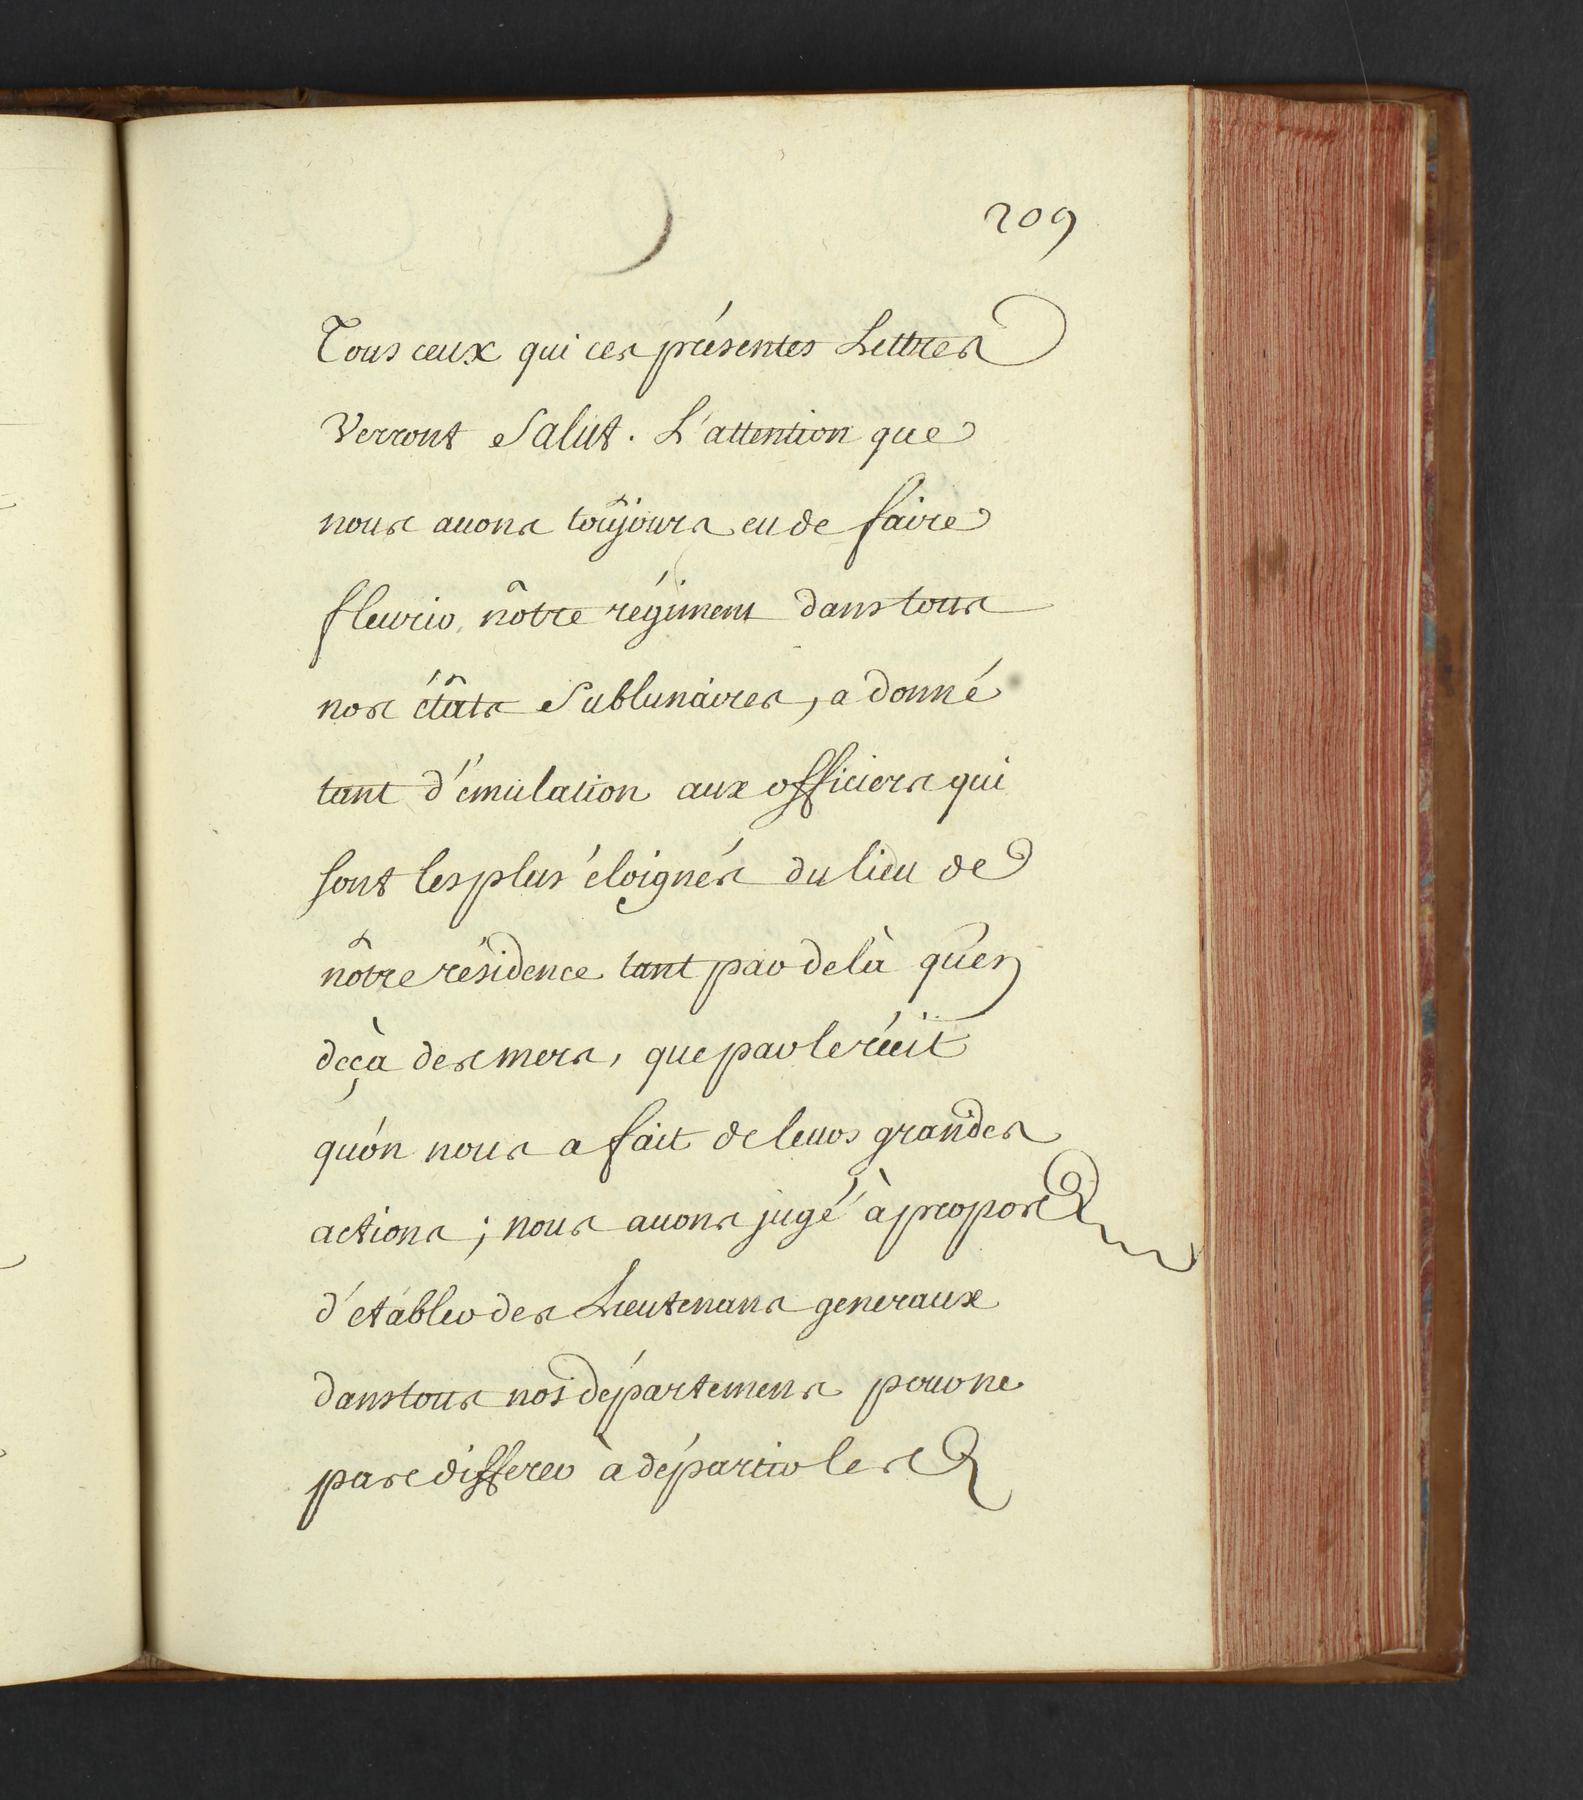 209
Tous ceux qui ces présentes Lettres
Verront Salut. L'attention que
nous auons toûjours eu de faire
fleurir nôtre régiment dans tous
nos états Sublunaires, a donné
tant d'émulation aux officiers qui
sont les plus éloignés du lieu de
nôtre résidence tant par delà qu'en
deçà des mers, que par le récit
qu'on nous a fait de leurs grandes
actions; nous auons jugé à propos
d'etablir des Lieutenans generaux
dans tous nos départemens pour ne
pas differer à départir les